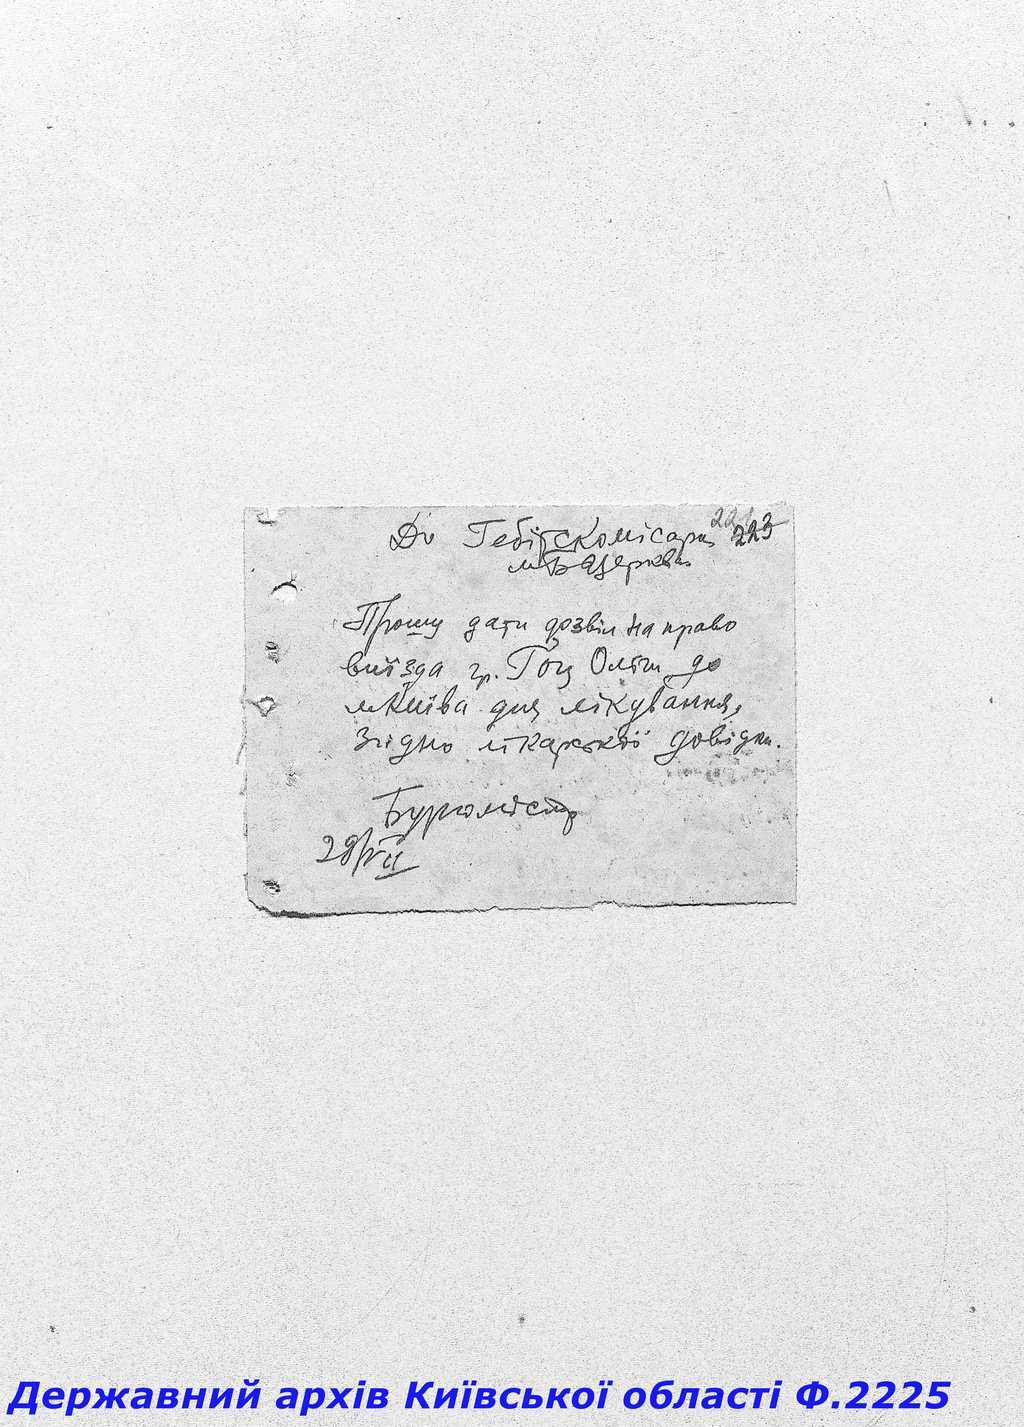 223
До Гебітскомісара
м Б Церкви
Прошу дати дозвіл на право
виїзда гр. Гоц Оліш до
м Київа для лікування,
згідно лікарської довідки.
Бургомістр
29/VII
Державний архів Київської області Ф.2225